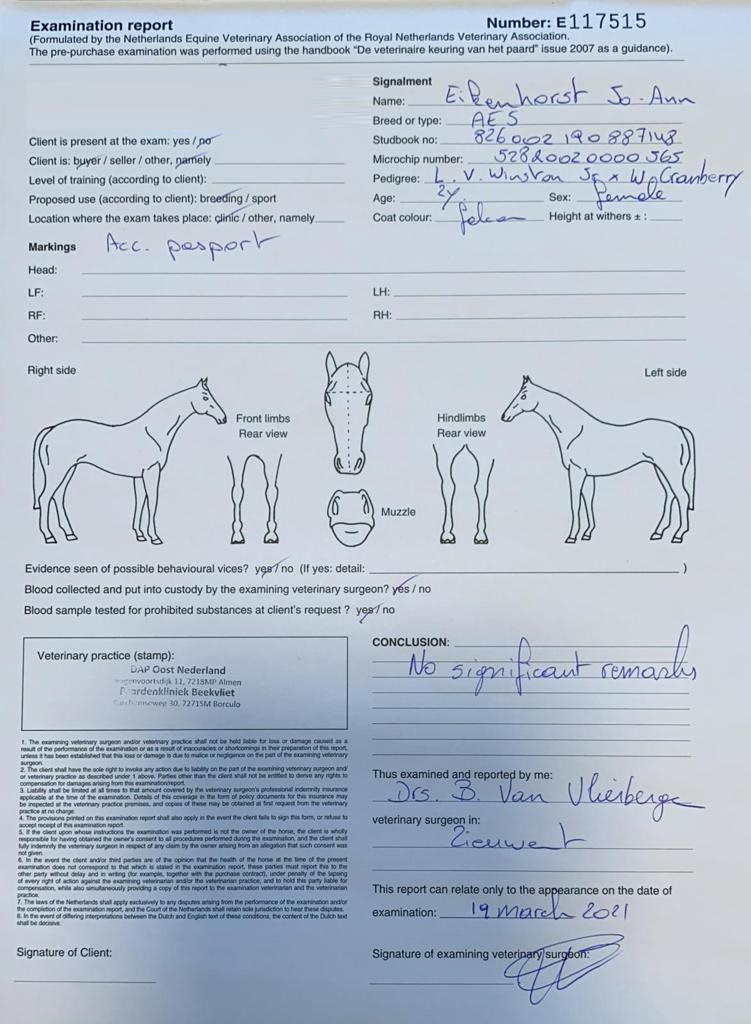 Examination report
Number: E117515
(Formulated by the Netherlands Equine Veterinary Association of the Royal Netherlands Veterinary Association.
The pre-purchase examination was performed using the handbook "De veterinaire keuring van het paard" issue 2007 as a guidance).
Signalment
Name: Eikenhorst Jo-Ann
Breed or type: AES
Studbook no: 826002190887148
Microchip number: 52820020000565
Pedigree: L.V. Winston Sg x W. Cranberry
Age: 2y Sex: female
Coat colour: Height at withers ± :
Client is present at the exam: yes / no
Client is: buyer / seller / other, namely
Level of training (according to client):
Proposed use (according to client): breeding / sport
Location where the exam takes place: clinic / other, namely
Markings Acc. pasport
Head:
LF: LH:
RF: RH:
Other:
Right side
Left side
Front limbs
Rear view
Hindlimbs
Rear view
Muzzle
Evidence seen of possible behavioural vices? yes / no (If yes: detail: )
Blood collected and put into custody by the examining veterinary surgeon? yes / no
Blood sample tested for prohibited substances at client's request ? yes / no
Veterinary practice (stamp):
DAP Oost Nederland
11, 7218MP Almen
Paardenkliniek Beekvliet
30, 7271SM Borculo
CONCLUSION:
No significant remarks
1. The examining veterinary surgeon and/or veterinary practice shall not be held liable for loss or damage caused as a
result of the performance of the examination or as a result of inaccuracies or shortcomings in their preparation of this report,
unless it has been established that this loss or damage is due to malice or negligence on the part of the examining veterinary
surgeon.
2. The client shall have the sole right to invoke any action due to liability on the part of the examining veterinary surgeon and/
or veterinary practice as described under 1 above. Parties other than the client shall not be entitled to derive any rights to
compensation for damages arising from this examination/report.
3. Liability shall be limited at all times to that amount covered by the veterinary surgeon's professional indemnity insurance
applicable at the time of the examination. Details of this coverage in the form of policy documents for this insurance may
be inspected at the veterinary practice premises, and copies of these may be obtained at first request from the veterinary
practice at no charge.
4. The provisions printed on this examination report shall also apply in the event the client fails to sign this form, or refuse to
accept receipt of this examination report.
5. If the client upon whose instructions the examination was performed is not the owner of the horse, the client is wholly
responsible for having obtained the owner's consent to all procedures performed during the examination, and the client shall
fully indemnify the veterinary surgeon in respect of any claim by the owner arising from an allegation that such consent was
not given.
6. In the event the client and/or third parties are of the opinion that the health of the horse at the time of the present
examination does not correspond to that which is stated in the examination report, these parties must report this to the
other party without delay and in writing (for example, together with the purchase contract), under penalty of the lapsing
of every right of action against the examining veterinarian and/or the veterinarian practice, and to hold this party liable for
compensation, while also simultaneously providing a copy of this report to the examination veterinarian and the veterinarian
practice.
7. The laws of the Netherlands shall apply exclusively to any disputes arising from the performance of the examination and/or
the completion of the examination report, and the Court of the Netherlands shall retain sole jurisdiction to hear these disputes.
8. In the event of differing interpretations between the Dutch and English text of these conditions, the content of the Dutch text
shall be decisive.
Thus examined and reported by me:
Drs. B. Van Vlierberge
veterinary surgeon in:
Zieuwent
This report can relate only to the appearance on the date of
examination: 19 march 2021
Signature of Client:
Signature of examining veterinary surgeon: